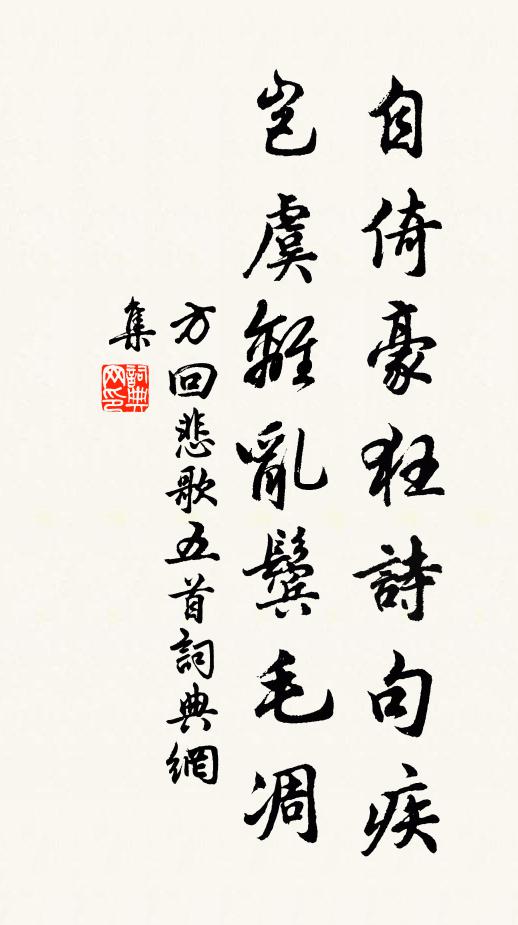 自倚豪狂詩句疾
豈虞離亂鬢毛凋
方回悲歌五首詞典網
集
詞典網印